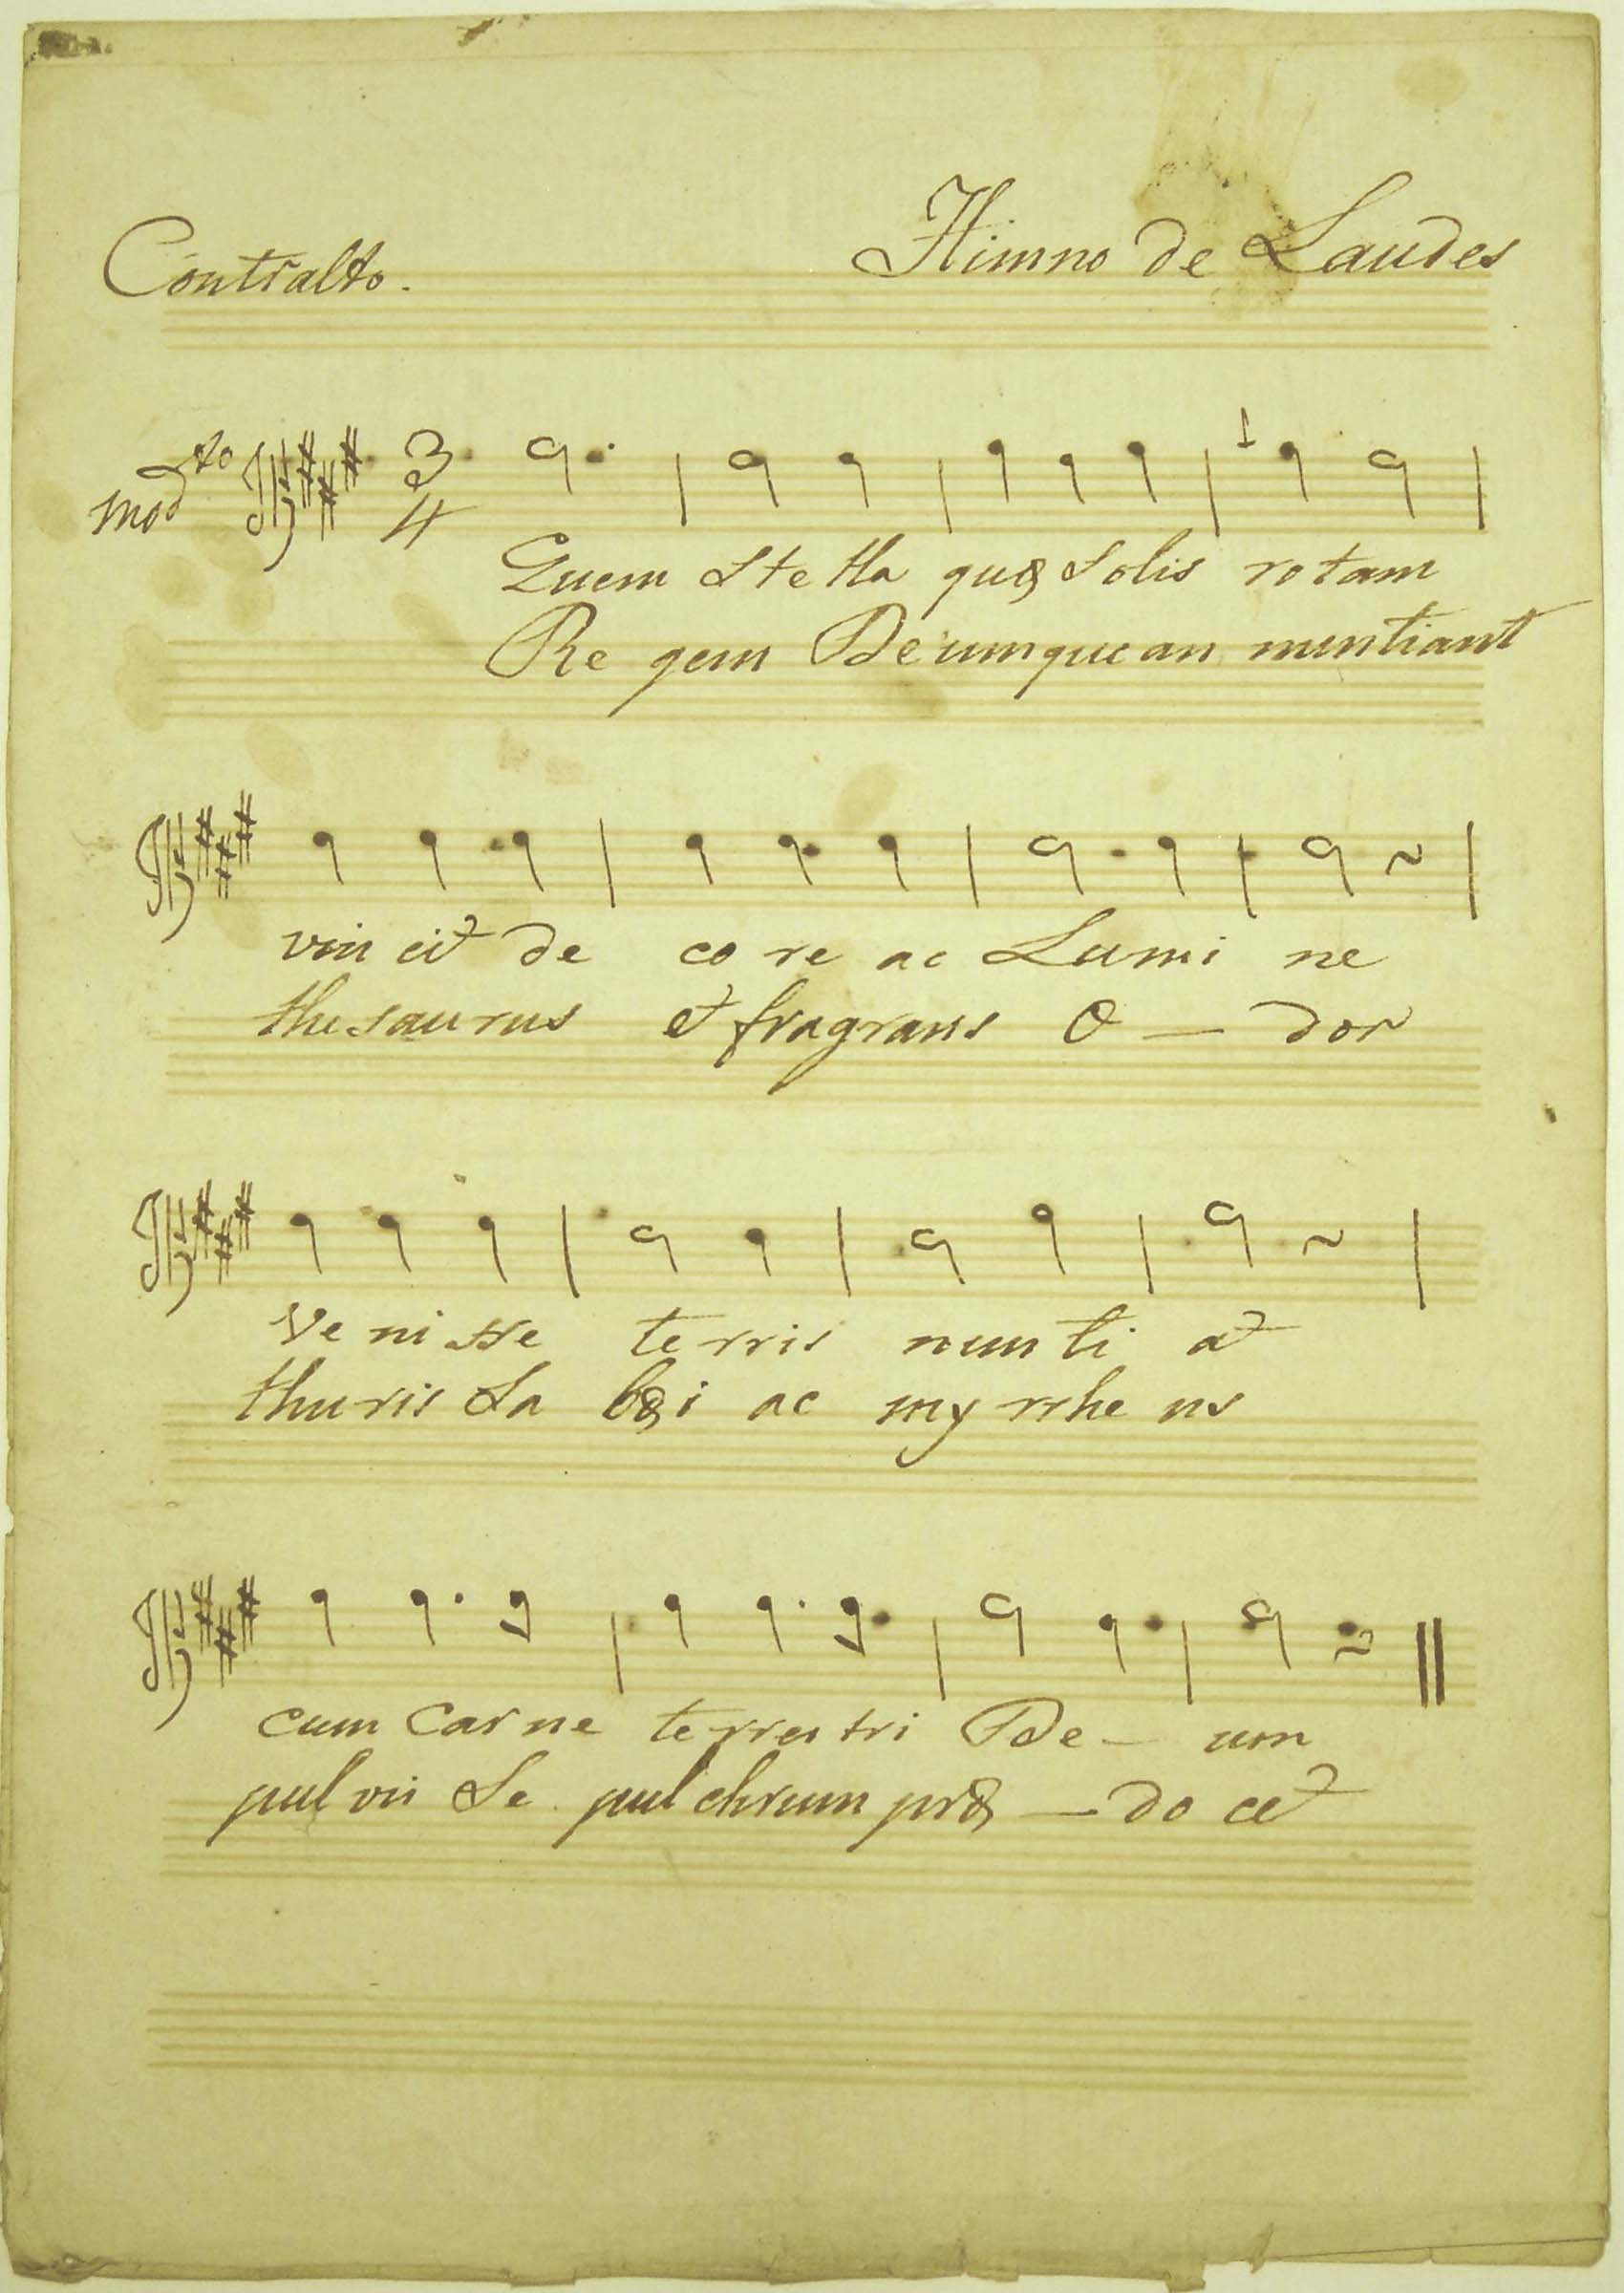 Contralto. Himno de Laudes
Modto 3/4
Quem Ste lla quæ Solis rotam
Re gem Deumque an nuntiant
vin cit de co re ac Lumi ne
thesaurus et fragrans O — dor
Ve ni sse te rris nun ti at
thuris Sa bæi ac my rrhe us
cum Car ne te rres tri De — um
pul vis Se pul chrum præ — do cet